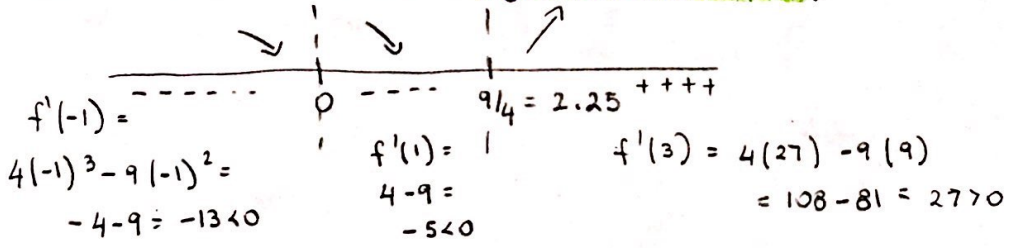 - - - - - - 0 - - - - 9/4 = 2.25 + + + +
f'(-1) =
4(-1)³ - 9(-1)² =
-4 - 9 = -13 < 0
f'(1) =
4 - 9 =
-5 < 0
f'(3) = 4(27) - 9(9)
= 108 - 81 = 27 > 0